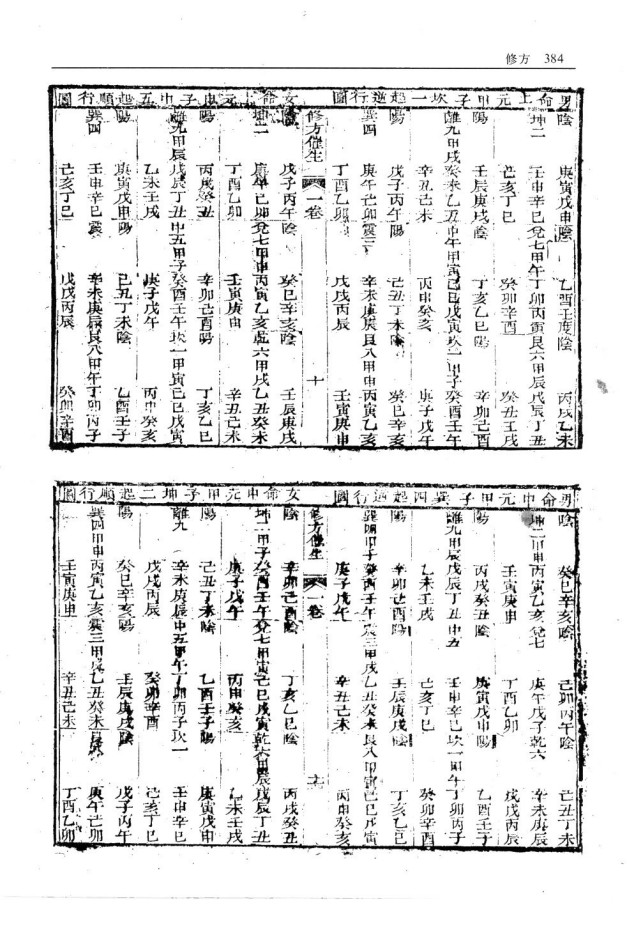 修方 384
男命上元甲子坎一起逆行圖
陰 庚寅戊申陰 乙酉壬陰 丙戌乙未
坤二 壬申辛巳兌七甲午丁卯丙寅艮六甲辰戊辰丁丑
己亥丁巳 癸卯辛酉 癸丑壬戌
陽 壬辰庚戌陰 丁亥乙巳陽 辛卯己酉
離九甲戌癸未乙丑中甲寅己巳戊寅坎一甲子癸酉壬午
辛丑己未 丙申癸亥 庚子戊午
陽 戊子丙午陰 己丑丁未陰 癸巳辛亥
巽四 庚午己卯震三 辛未庚辰艮八甲申丙寅乙亥
丁酉乙卯 戊戌丙辰 壬寅庚申
修方催生 一卷 十
女命元申子中五起順行圖
陰 戊子丙午陰 癸巳辛亥陰 壬辰庚戌
坤二 庚午己卯兌七甲申丙寅乙亥乾六甲戌乙丑癸未
丁酉乙卯 壬寅庚申 辛丑己未
陽 丙戌癸丑 辛卯己酉陽 丁亥乙巳
離九甲辰戊辰丁丑中五甲子癸酉壬午坎一甲寅己巳戊寅
乙未壬戌 庚子戊午 丙申癸亥
陽 庚寅戊申陽 己丑丁未陰 乙酉壬子
巽四 壬申辛巳震 辛未庚辰艮八甲午丁卯丙子
己亥丁巳 戊戌丙辰 癸卯辛酉
男命中元甲子巽四起逆行圖
陰 癸巳辛亥陰 己卯丙午陰 己丑丁未
坤二甲申丙寅乙亥兌七 庚午戊子乾六 辛未庚辰
壬寅庚申 丁酉乙卯 戊戌丙辰
陽 丙戌癸丑陰 庚寅戊申陽 乙酉壬子
離九甲辰戊辰丁丑中五 壬申辛巳坎一甲午丁卯丙子
乙未壬戌 己亥丁巳 癸卯辛酉
陽 辛卯己酉陽 壬辰庚戌陰 丁亥乙巳
巽四甲子癸酉壬午震三甲戌乙丑癸未艮八甲寅己巳戊寅
庚子戊午 辛丑己未 丙申癸亥
修方催生 一卷
女命中元甲子坤二起順行圖
陰 辛卯己酉陰 丁亥乙巳陰 丙戌癸丑
坤二甲子癸酉壬午兌七甲寅己巳戊寅乾六甲辰戊辰丁丑
庚子戊午 丙申癸亥 乙未壬戌
陽 己丑丁未陰 乙酉壬子陰 庚寅戊申
離九 辛未庚辰中五甲午丁卯丙子坎一 壬申辛巳
戊戌丙辰 癸卯辛酉 己亥丁巳
陽 癸巳辛亥陽 壬辰庚戌陰 戊子丙午
巽四甲申丙寅乙亥震三甲戌乙丑癸未艮八 庚午己卯
壬寅庚申 辛丑己未 丁酉乙卯